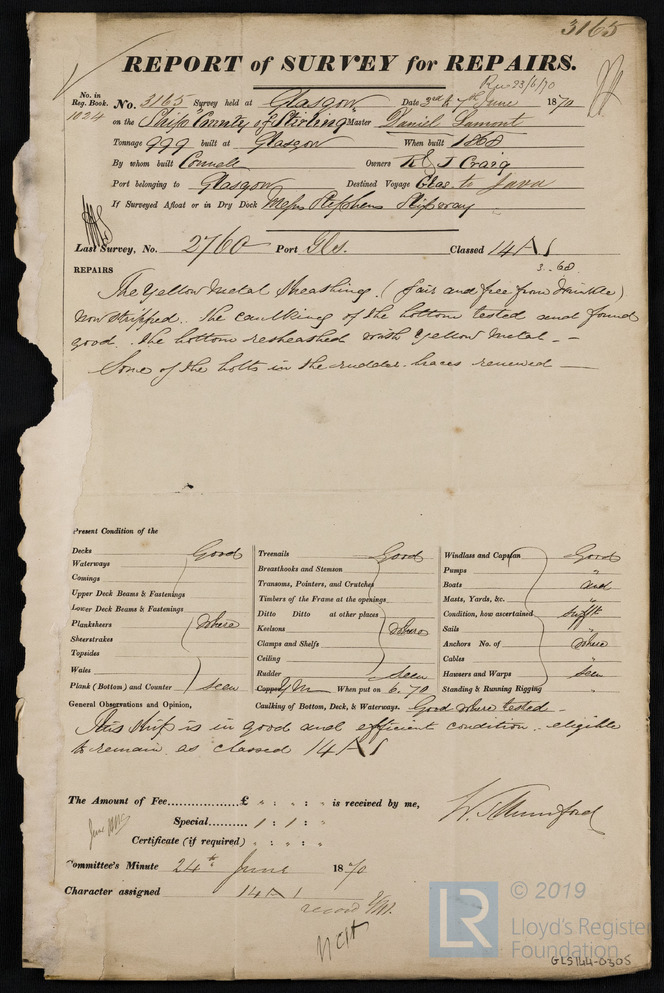 3165
REPORT of SURVEY for REPAIRS.
23/6/70
No. in
Reg. Book.
1024
No. 3165 Survey held at Glasgow Date 3rd to 7th June 1870
on the Ship "County of Stirling" Master Daniel Lamont
Tonnage 999 built at Glasgow When built 1868
By whom built Connell Owners R & J Craig
Port belonging to Glasgow Destined Voyage Glas. to Java
If Surveyed Afloat or in Dry Dock Messrs Stephens Slipway
Last Survey, No. 2760 Port Gls. Classed 14 A 1
3.68
REPAIRS
The Yellow Metal Sheathing (fair and free from Wrinkle)
now stripped. The caulking of the bottom tested and found
good. The bottom resheathed with Yellow Metal. -
Some of the bolts in the rudder braces renewed -
Present Condition of the
Decks Good
Waterways
Comings
Upper Deck Beams & Fastenings
Lower Deck Beams & Fastenings
Planksheers where
Sheerstrakes
Topsides
Wales
Plank (Bottom) and Counter seen
Treenails Good
Breasthooks and Stemson
Transoms, Pointers, and Crutches
Timbers of the Frame at the openings
Ditto Ditto at other places
Keelsons where
Clamps and Shelfs
Ceiling
Rudder seen
Copper YM When put on 6.70
Windlass and Capstan Good
Pumps "
Boats and
Masts, Yards, &c. "
Condition, how ascertained sufft
Sails "
Anchors No. of where
Cables "
Hawsers and Warps seen
Standing & Running Rigging "
General Observations and Opinion, Caulking of Bottom, Deck, & Waterways. Good where tested -
This ship is in good and efficient condition. eligible
to remain as classed 14 A 1
The Amount of Fee............... £ " : " : " is received by me,
Special............ 1 : 1 : "
Certificate (if required) " : " : "
W. Mumford
Committee's Minute 24th June 1870
Character assigned 14 A 1
© 2019
LR
Lloyd's Register
Foundation
GLS144-0305